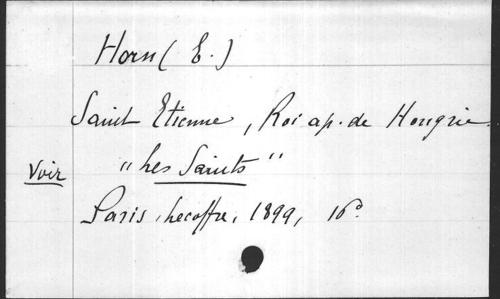 Horn (E.)
Saint Etienne, Roi ap. de Hongrie.
Voir "Les Saints"
Paris, Lecoffre, 1899, 16º